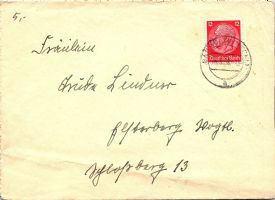 5,-
Fräulein
Lindner
Elsterberg Vogtl.
Schloßberg 13
12 12
Deutsches Reich